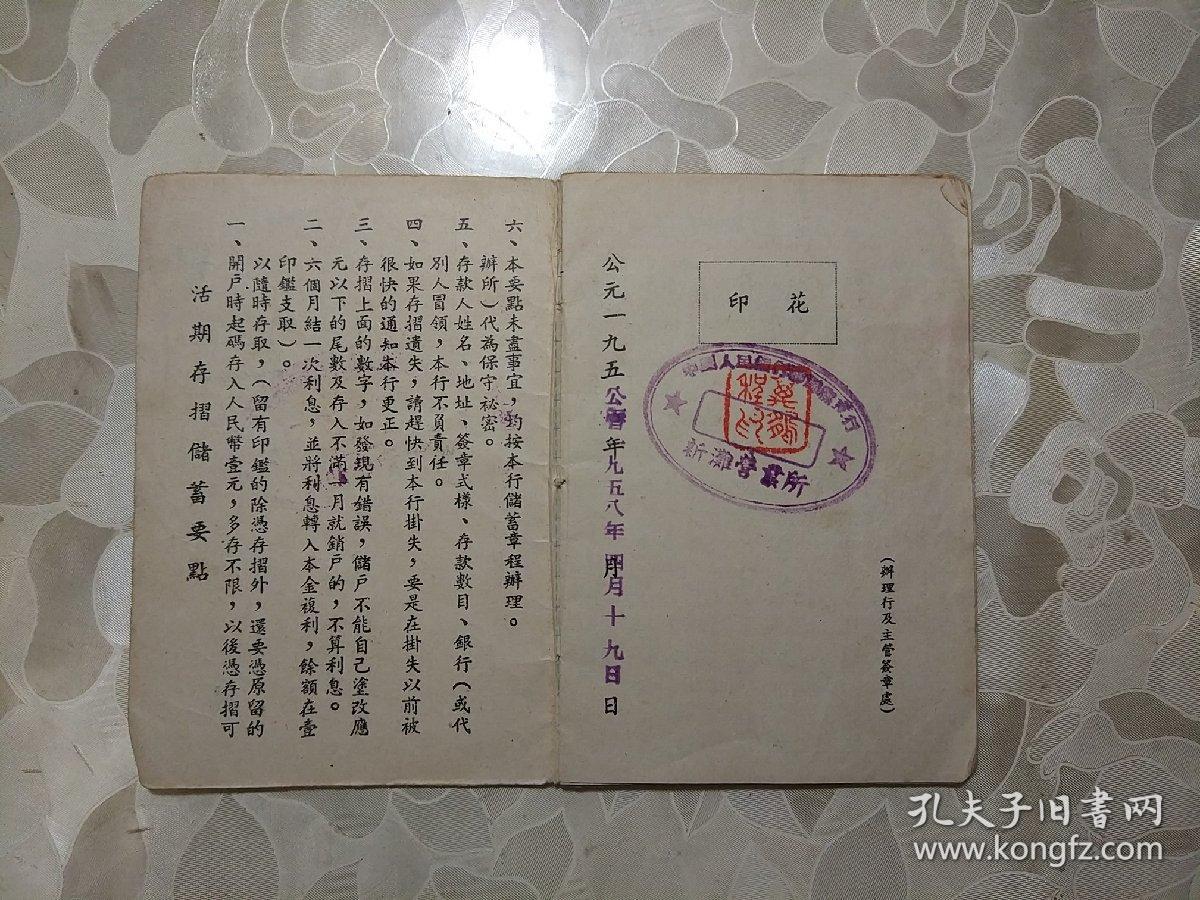 活期存摺儲蓄要點
一、開戶時起碼存入人民幣壹元，多存不限，以後憑存摺可
以隨時存取，（留有印鑑的除憑存摺外，還要憑原留的
印鑑支取）。
二、六個月結一次利息，並將利息轉入本金複利，餘額在壹
元以下的尾數及存入不滿一月就銷戶的，不算利息。
三、存摺上面的數字，如發現有錯誤，儲戶不能自己塗改應
很快的通知本行更正。
四、如果存摺遺失，請趕快到本行掛失，要是在掛失以前被
別人冒領，本行不負責任。
五、存款人姓名、地址、簽章式樣、存款數目、銀行（或代
辦所）代為保守祕密。
六、本要點未盡事宜，均按本行儲蓄章程辦理。
公元一九五 年 月 日
九五八年四月十九日
印花
中國人民銀行
新灘營業所
（辦理行及主管簽章處）
孔夫子旧书网
www.kongfz.com